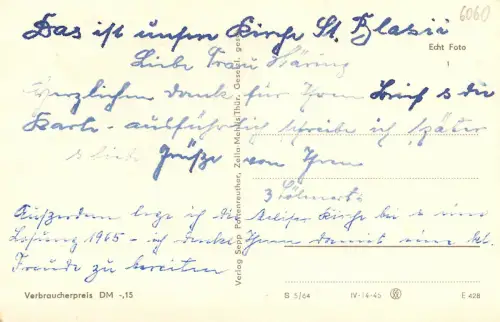 6060
Das ist unsere Kirche St. Blasii
Echt Foto
Liebe Frau Häring
Herzlichen Dank für Ihren Brief & die
Karte - ausführlich schreibe ich später
& liebe Grüße von Ihrem
Außerdem lege ich die Kirche bei & eine
Losung 1965 - ich denke Ihnen damit eine kl.
Freude zu bereiten
Verlag Sepp Pattenreuther, Zella-Mehlis/Thür. Gesetzl. ges
Verbraucherpreis DM -,15
S 5/64 IV-14-45 E 428